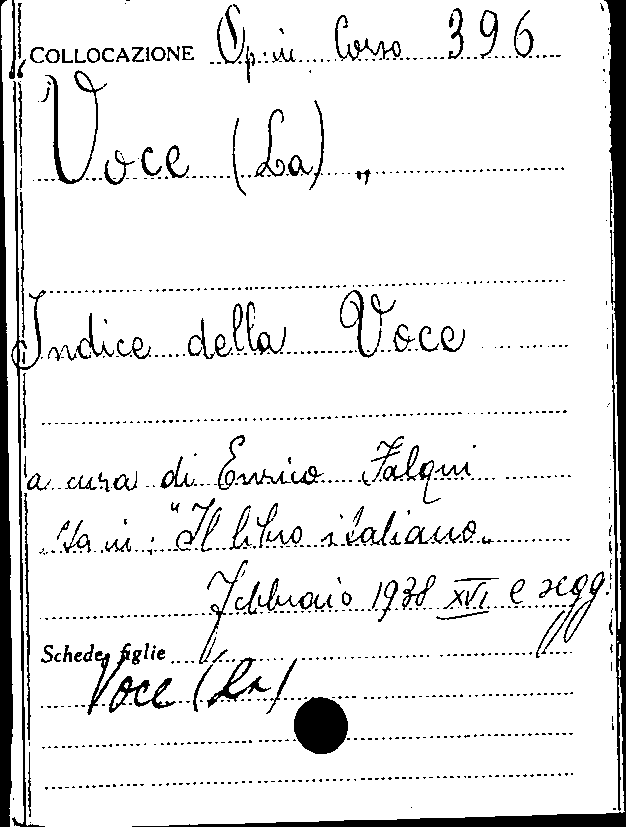 COLLOCAZIONE Op. in Corso 396
Voce (La) „
Indice della Voce
a cura di Enrico Falqui
Sta in: "Il libro italiano„
Febbraio 1938 XVI e segg.
Schede figlie
Voce (La)